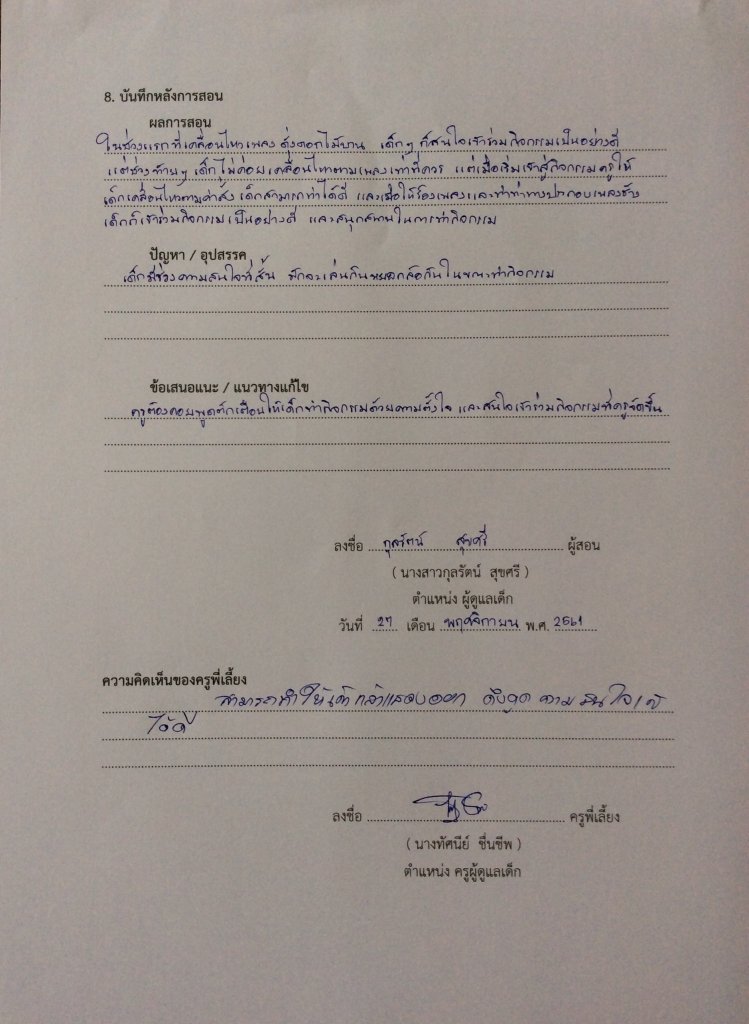 8. บันทึกหลังการสอน
ผลการสอน
ในช่วงแรกที่เคลื่อนไหวเพลง ดั่งดอกไม้บาน เด็กๆ ก็สนใจเข้าร่วมกิจกรรมเป็นอย่างดี
แต่ช่วงท้ายๆ เด็กไม่ค่อยเคลื่อนไหวตามเพลงเท่าที่ควร แต่เมื่อเริ่มเข้าสู่กิจกรรมครูให้
เด็กเคลื่อนไหวตามคำสั่ง เด็กสามารถทำได้ดี และเมื่อให้ร้องเพลงและทำท่าทางประกอบเพลงช้าง
เด็กก็เข้าร่วมกิจกรรมเป็นอย่างดี และสนุกสนานในการทำกิจกรรม
ปัญหา / อุปสรรค
เด็กมีช่วงความสนใจที่สั้น มักจะเล่นกันหยอกล้อกันในขณะทำกิจกรรม
ข้อเสนอแนะ / แนวทางแก้ไข
ครูต้องคอยพูดตักเตือนให้เด็กทำกิจกรรมด้วยความตั้งใจ และสนใจเข้าร่วมกิจกรรมที่ครูจัดขึ้น
ลงชื่อ กุลรัตน์ สุขศรี ผู้สอน
( นางสาวกุลรัตน์ สุขศรี )
ตำแหน่ง ผู้ดูแลเด็ก
วันที่ 27 เดือน พฤศจิกายน พ.ศ. 2561
ความคิดเห็นของครูพี่เลี้ยง
สามารถทำให้เด็กกล้าแสดงออก ดึงดูดความสนใจ
ได้ดี
ลงชื่อ ครูพี่เลี้ยง
( นางทัศนีย์ ชื่นชีพ )
ตำแหน่ง ครูผู้ดูแลเด็ก